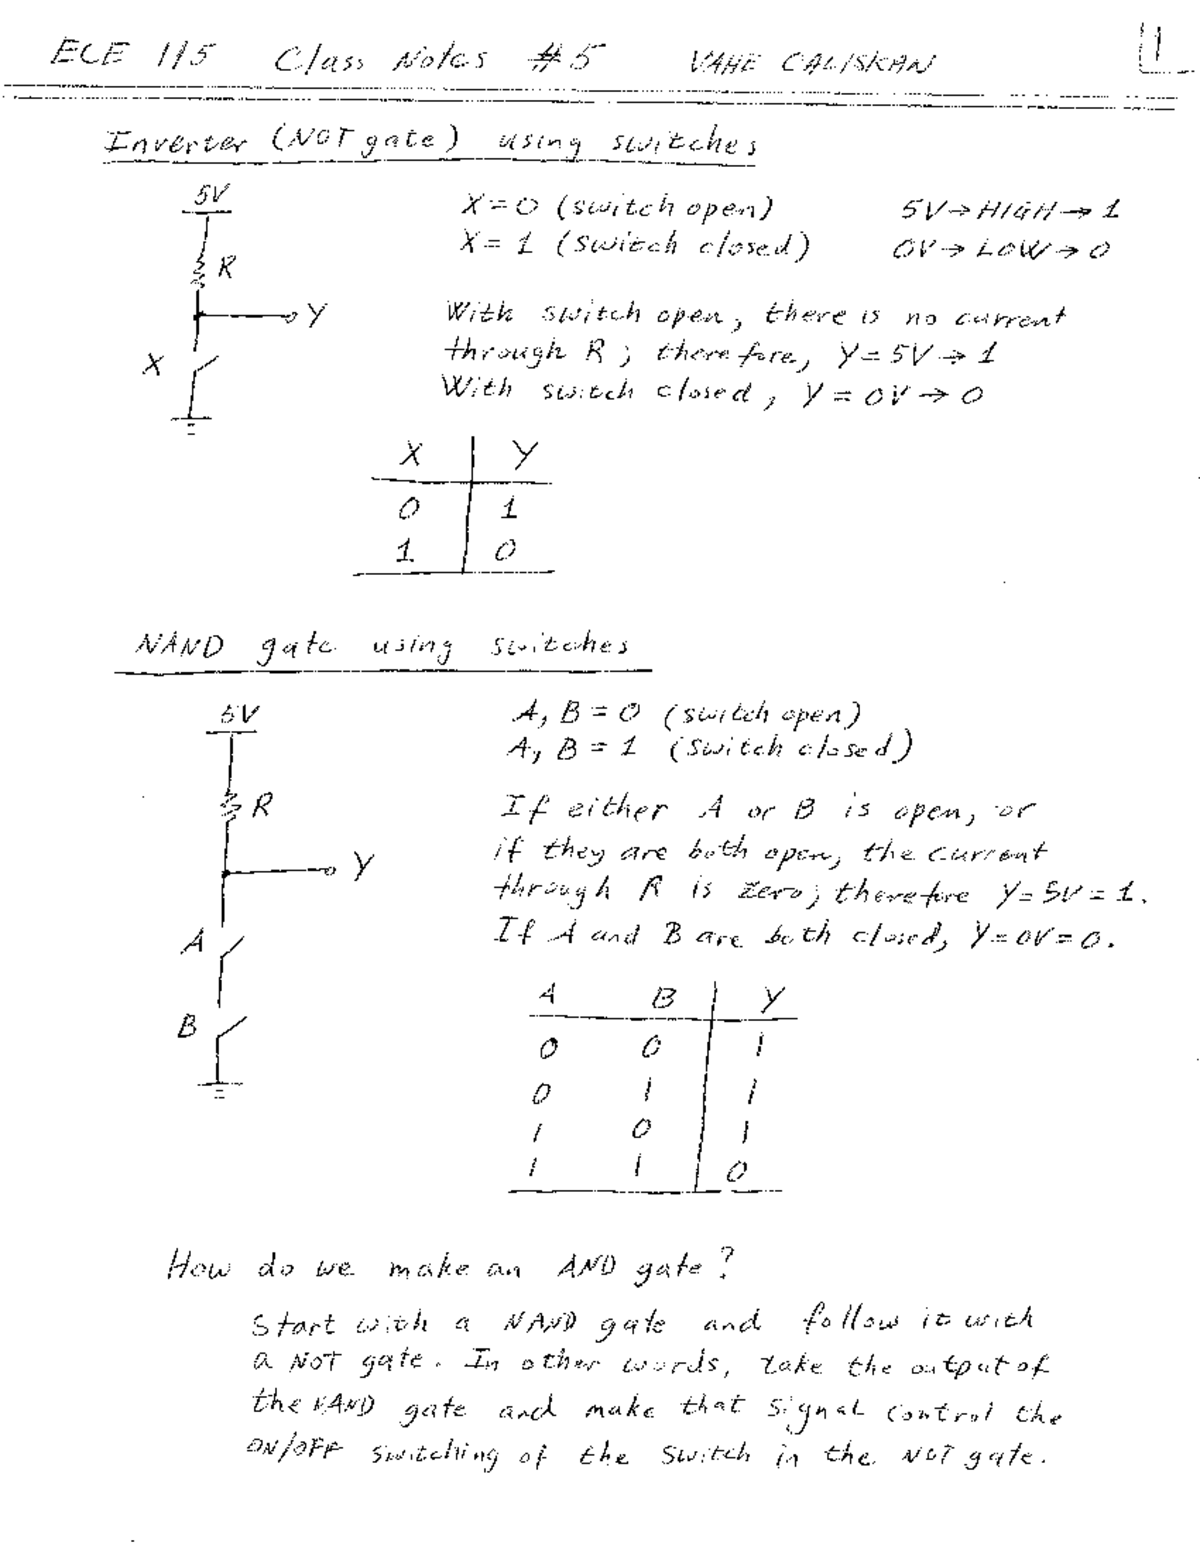 ECE 115 Class Notes #5 VAHE CALISKAN 1
Inverter (NOT gate) using switches
5V
R
Y
X
X=0 (switch open) 5V→HIGH→1
X=1 (switch closed) 0V→LOW→0
With switch open, there is no current
through R; therefore, Y=5V→1
With switch closed, Y=0V→0
X Y
0 1
1 0
NAND gate using switches
5V
R
Y
A
B
A, B = 0 (switch open)
A, B = 1 (switch closed)
If either A or B is open, or
if they are both open, the current
through R is zero; therefore Y=5V=1.
If A and B are both closed, Y=0V=0.
A B Y
0 0 1
0 1 1
1 0 1
1 1 0
How do we make an AND gate?
Start with a NAND gate and follow it with
a NOT gate. In other words, take the output of
the NAND gate and make that signal control the
ON/OFF switching of the switch in the NOT gate.